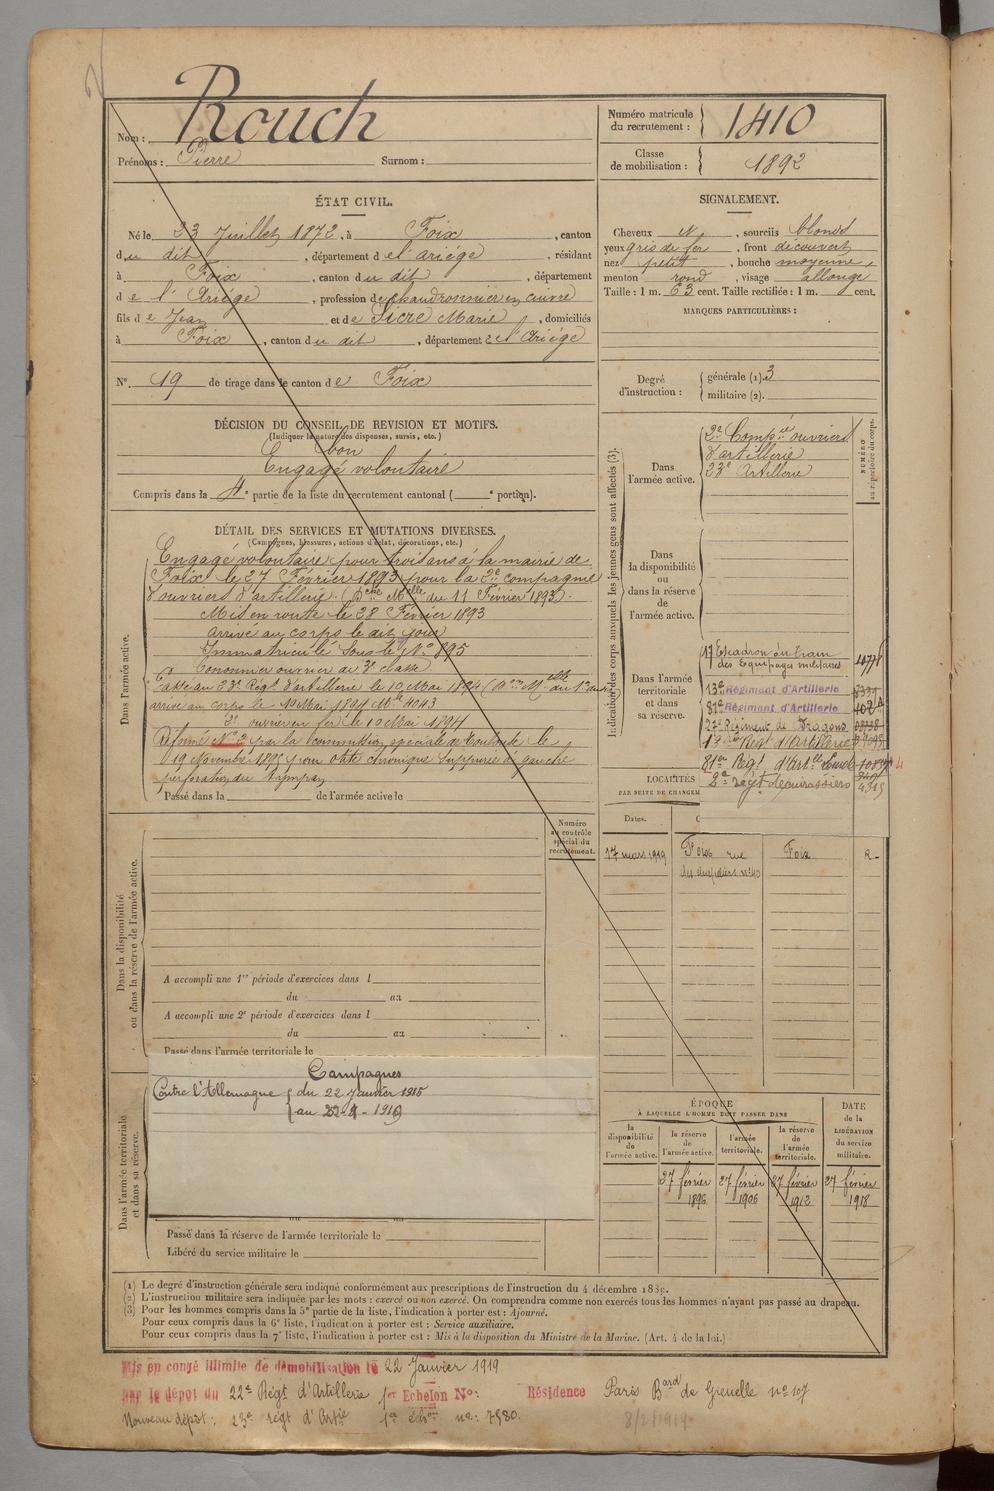 Rouch
Nom :
Prénoms : Pierre Surnom :
Numéro matricule du recrutement : 1410
Classe de mobilisation : 1892
ÉTAT CIVIL.
Né le 23 Juillet 1872, à Foix, canton
du dit, département de l'ariége, résidant
à Foix, canton du dit, département
de l'Ariége, profession de chaudronnier en cuivre
fils de Jean et de Sicre Marie, domiciliés
à Foix, canton du dit, département de l'Ariége
N° 19 de tirage dans le canton de Foix
SIGNALEMENT.
Cheveux N, sourcils blonds
yeux gris de fer, front découvert
nez petit, bouche moyenne,
menton rond, visage allongé
Taille : 1 m. 63 cent. Taille rectifiée : 1 m. cent.
MARQUES PARTICULIÈRES :
Degré d'instruction : générale (1). 3
militaire (2).
DÉCISION DU CONSEIL DE REVISION ET MOTIFS.
(Indiquer la nature des dispenses, sursis, etc.)
bon
Engagé volontaire
Compris dans la 4e partie de la liste du recrutement cantonal ( e portion).
DÉTAIL DES SERVICES ET MUTATIONS DIVERSES.
(Campagnes, blessures, actions d'éclat, décorations, etc.)
Dans l'armée active.
Engagé volontaire pour trois ans à la mairie de
Foix le 27 Février 1893 pour la 2e compagnie
d'ouvriers d'artillerie. (Dche Melle du 11 Février 1893).
Mis en route le 28 Février 1893
arrivé au corps le dit jour
Immatriculé sous le N° 895
Canonnier ouvrier de 3e classe
Passé au 23e Régt d'artillerie le 10 Mai 1894
arrivé au corps le 10 Mai 1894 Mle 4043
2e ouvrier en fer le 10 Mai 1894
Réformé N° 2 par la Commission spéciale de Toulouse le
19 Novembre 1895 pour otite chronique suppurée gauche
perforation du tympan
Passé dans la de l'armée active le
Indication des corps auxquels les jeunes gens sont affectés (3).
NUMÉRO au répertoire du corps.
Dans l'armée active.
2e Compie ouvriers
d'artillerie
23e Artillerie
Dans la disponibilité ou dans la réserve de l'armée active.
Dans l'armée territoriale et dans sa réserve.
17 Escadron du Train
des Equipages militaires
13e Régiment d'Artillerie
81e Régiment d'Artillerie
27e Régiment de Dragons
13e Regt d'Artillerie
81e Regt d'Artie Lourde
2e régt de cuirassiers
4315
LOCALITÉS
PAR SUITE DE CHANGEM
Dates.
17 mars 1919 Foix rue Foix R-
Dans la disponibilité ou dans la réserve de l'armée active.
Numéro au contrôle spécial du recrutement.
A accompli une 1re période d'exercices dans l
du au
A accompli une 2e période d'exercices dans l
du au
Passé dans l'armée territoriale le
Dans l'armée territoriale et dans sa réserve.
Campagnes
Contre l'Allemagne { du 22 Janvier 1915
{ au 22-1-1919
Passé dans la réserve de l'armée territoriale le
Libéré du service militaire le
ÉPOQUE
À LAQUELLE L'HOMME DOIT PASSER DANS
la disponibilité de l'armée active.
la réserve de l'armée active.
l'armée territoriale.
la réserve de l'armée territoriale.
DATE de la LIBÉRATION du service militaire.
27 février 1896
27 février 1906
27 février 1912
27 février 1918
(1) Le degré d'instruction générale sera indiqué conformément aux prescriptions de l'instruction du 4 décembre 1889.
(2) L'instruction militaire sera indiquée par les mots : exercé ou non exercé. On comprendra comme non exercés tous les hommes n'ayant pas passé au drapeau.
(3) Pour les hommes compris dans la 5e partie de la liste, l'indication à porter est : Ajourné.
Pour ceux compris dans la 6e liste, l'indication à porter est : Service auxiliaire.
Pour ceux compris dans la 7e liste, l'indication à porter est : Mis à la disposition du Ministre de la Marine. (Art. 4 de la loi.)
Mis en congé illimité de démobilisation le 22 Janvier 1919
par le dépôt du 22e Régt d'Artillerie 1er Echelon N° : Résidence Paris Bard de Grenelle n° 107
Nouveau dépôt : 23e régt d'Artie 1er éch. n° : 7580. 8/2/1919